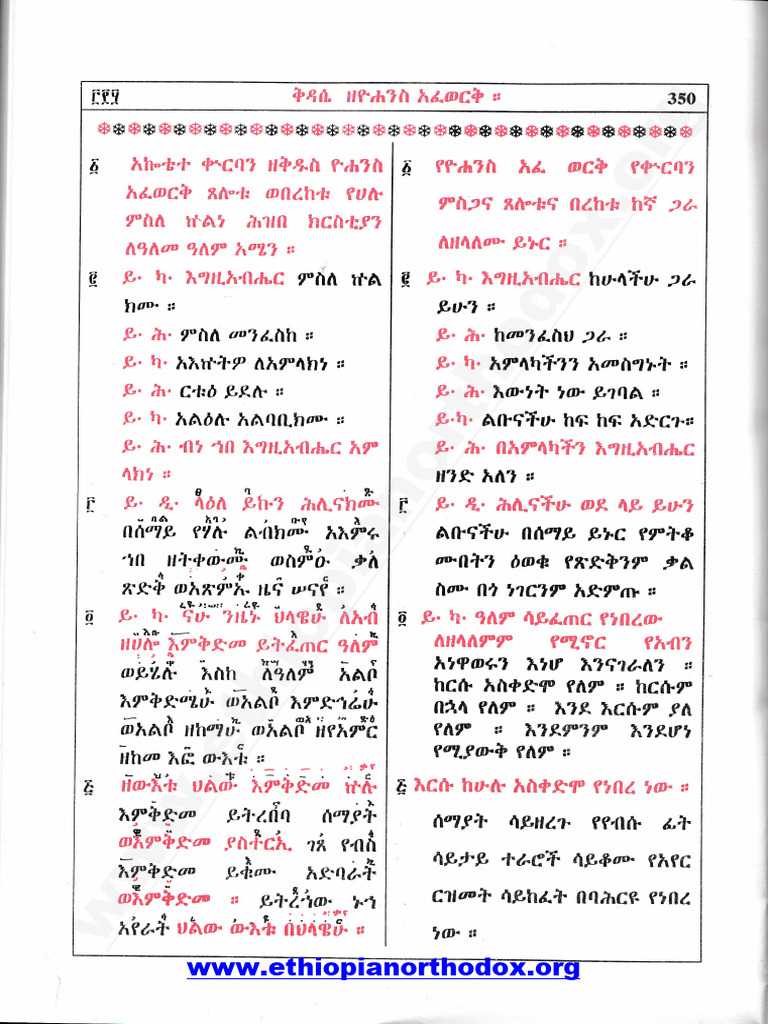 ፫፻፶ ቅዳሴ ዘዮሐንስ አፈወርቅ ። 350
፩ አኰቴተ ቍርባን ዘቅዱስ ዮሐንስ
አፈወርቅ ጸሎቱ ወበረከቱ የሀሉ
ምስለ ኵልነ ሕዝበ ክርስቲያን
ለዓለመ ዓለም አሜን ።
፪ ይ· ካ· እግዚአብሔር ምስለ ኵል
ክሙ ።
ይ· ሕ· ምስለ መንፈስከ ።
ይ· ካ· አእኵትዎ ለአምላክነ ።
ይ· ሕ· ርቱዕ ይደሉ ።
ይ· ካ· አልዕሉ አልባቢክሙ ።
ይ· ሕ· ብነ ኀበ እግዚአብሔር አም
ላክነ ።
፫ ይ· ዲ· ላዕለ ይኩን ሕሊናክሙ
በሰማይ የሃሉ ልብክሙ አእምሩ
ኀበ ዘትቀውሙ ወስምዑ ቃለ
ጽድቅ ወአጽምኡ ዜና ሠናየ ።
፬ ይ· ካ· ናሁ ንዜኑ ህላዌሁ ለአብ
ዘሀሎ እምቅድመ ይትፈጠር ዓለም
ወይሄሉ እስከ ለዓለም አልቦ
እምቅድሜሁ ወአልቦ እምድኅሬሁ
ወአልቦ ዘከማሁ ወአልቦ ዘየአምር
ዘከመ እፎ ውእቱ ።
፭ ዘውእቱ ህልው እምቅድመ ኵሉ
እምቅድመ ይትረበባ ሰማያት
ወእምቅድመ ያስተርኢ ገጸ የብስ
እምቅድመ ይቁሙ አድባራት
ወእምቅድመ ። ይትረኀው ኑኀ
አየራት ህልው ውእቱ በህላዌሁ ።
፩ የዮሐንስ አፈ ወርቅ የቍርባን
ምስጋና ጸሎቱና በረከቱ ከኛ ጋራ
ለዘላለሙ ይኑር ።
፪ ይ· ካ· እግዚአብሔር ከሁላችሁ ጋራ
ይሁን ።
ይ· ሕ· ከመንፈስህ ጋራ ።
ይ· ካ· አምላካችንን አመስግኑት ።
ይ· ሕ· እውነት ነው ይገባል ።
ይ·ካ· ልቡናችሁ ከፍ ከፍ አድርጉ።
ይ· ሕ· በአምላካችን እግዚአብሔር
ዘንድ አለን ።
፫ ይ· ዲ· ሕሊናችሁ ወደ ላይ ይሁን
ልቡናችሁ በሰማይ ይኑር የምትቆ
ሙበትን ዕወቁ የጽድቅንም ቃል
ስሙ በጎ ነገርንም አድምጡ ።
፬ ይ· ካ· ዓለም ሳይፈጠር የነበረው
ለዘላለምም የሚኖር የአብን
አነዋወሩን እነሆ እንናገራለን ።
ከርሱ አስቀድሞ የለም ። ከርሱም
በኋላ የለም ። እንደ እርሱም ያለ
የለም ። እንደምንም እንደሆነ
የሚያውቅ የለም ።
፭ እርሱ ከሁሉ አስቀድሞ የነበረ ነው ።
ሰማያት ሳይዘረጉ የየብሱ ፊት
ሳይታይ ተራሮች ሳይቆሙ የአየር
ርዝመት ሳይከፈት በባሕርዩ የነበረ
ነው ።
www.ethiopianorthodox.org